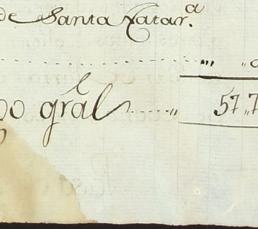 de Santa Catar.ª
" "
grãl " 57,,7